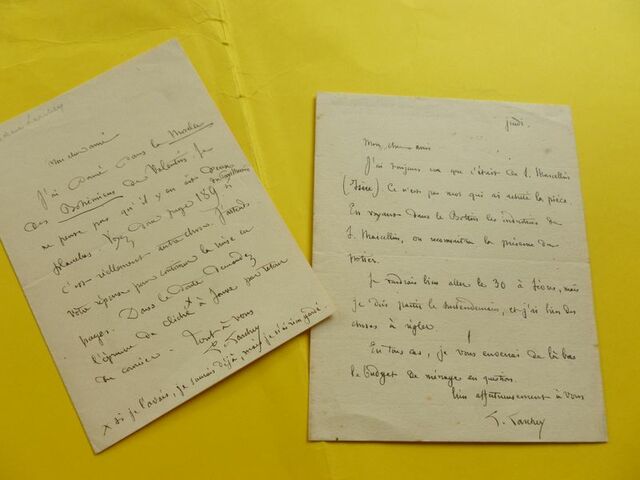 Mon cher ami
J'ai donné dans la
des Bohémiens de Valentin. Je
ne pense pas qu'il y en ait deux
planches. Voyez donc page 189 si
c'est réellement autre chose. J'attends
votre réponse pour continuer la mise en
pages. Dans le doute demandez
l'épreuve du cliché x à Jouve par retour
du courrier. Tout à vous
x si je l'avais, je saurais déjà, mais je n'ai rien gardé
jeudi.
Mon cher ami
J'ai toujours cru que c'était à S. Marcellin
(Isère) Ce n'est pas moi qui ai acheté la pièce.
En voyant dans le Bottin les industries de
S. Marcellin, on rencontrera la présence du
potier.
Je voudrais bien aller le 30 à mais
je dois partir le surlendemain, et j'ai bien des
choses à régler.
En tous cas, je vous enverrai de là bas
le budget de ménage en question.
bien affectueusement à vous